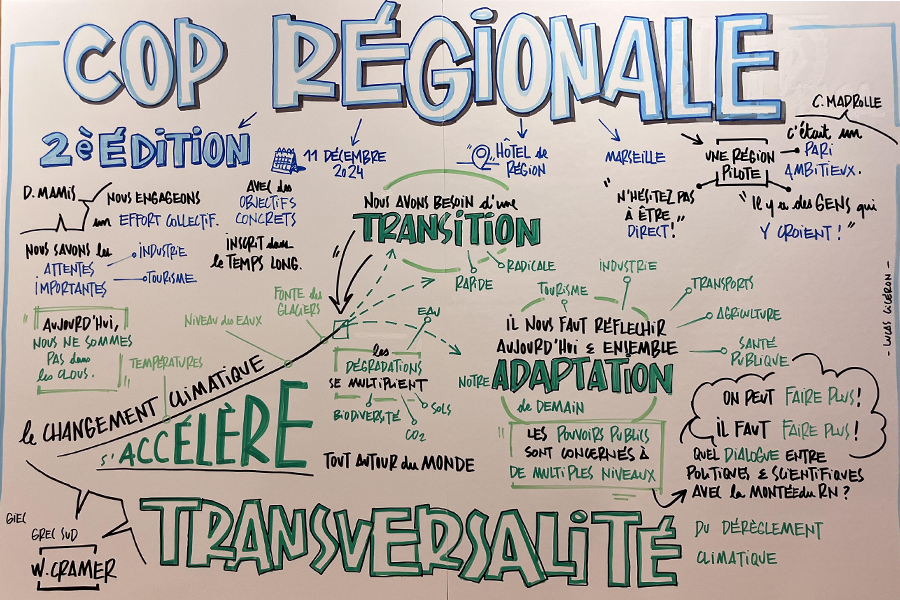 COP RÉGIONALE
C. MADROLLE
2è ÉDITION
11 DÉCEMBRE
2024
HÔTEL de
RÉGION
MARSEILLE
UNE RÉGION
PILOTE
c'était un
PARI
AMBITIEUX.
"Il y a des GENS qui
Y CROIENT!"
"N'HÉSITEZ PAS
À ÊTRE
DIRECT!"
D. MAMIS
NOUS ENGAGEONS
un EFFORT COLLECTIF.
AVEC des
OBJECTIFS
CONCRETS
INSCRIT dans
le TEMPS LONG.
NOUS SAVONS les
ATTENTES
IMPORTANTES
INDUSTRIE
TOURISME
NOUS AVONS BESOIN d'une
TRANSITION
RAPIDE
RADICALE
"AUJOURD'HUI,
NOUS NE SOMMES
PAS dans
les CLOUS."
TEMPÉRATURES
NIVEAU des EAUX
FONTE des
GLACIERS
le CHANGEMENT CLIMATIQUE
s'ACCÉLÈRE
TOUT AUTOUR du MONDE
EAU
les
DÉGRADATIONS
SE MULTIPLIENT
BIODIVERSITÉ
CO2
SOLS
TOURISME
INDUSTRIE
TRANSPORTS
AGRICULTURE
SANTÉ
PUBLIQUE
IL NOUS FAUT RÉFLECHIR
AUJOURD'HUI & ENSEMBLE
NOTRE ADAPTATION
de DEMAIN
"LES POUVOIRS PUBLICS
SONT CONCERNÉS À
DE MULTIPLES NIVEAUX
ON PEUT FAIRE PLUS!
IL FAUT FAIRE PLUS!
QUEL DIALOGUE ENTRE
POLITIQUES & SCIENTIFIQUES
AVEC la MONTÉE du RN?
- LUCAS CICÉRON -
GIEC
GREC SUD
W. CRAMER
TRANSVERSALITÉ
DU DÉRÈGLEMENT
CLIMATIQUE